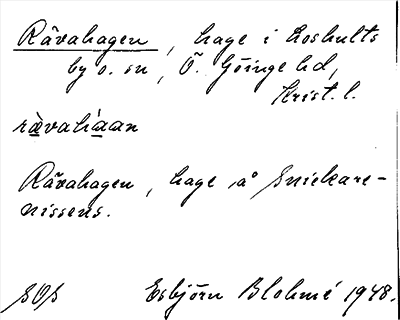 Rävahagen, hage i Loshults
by o. sn, Ö. Göinge hd,
Krist. l.
rävahaan
Rävahagen, hage å Snickare-
nissens.
SOS Esbjörn Blohmé 1948.